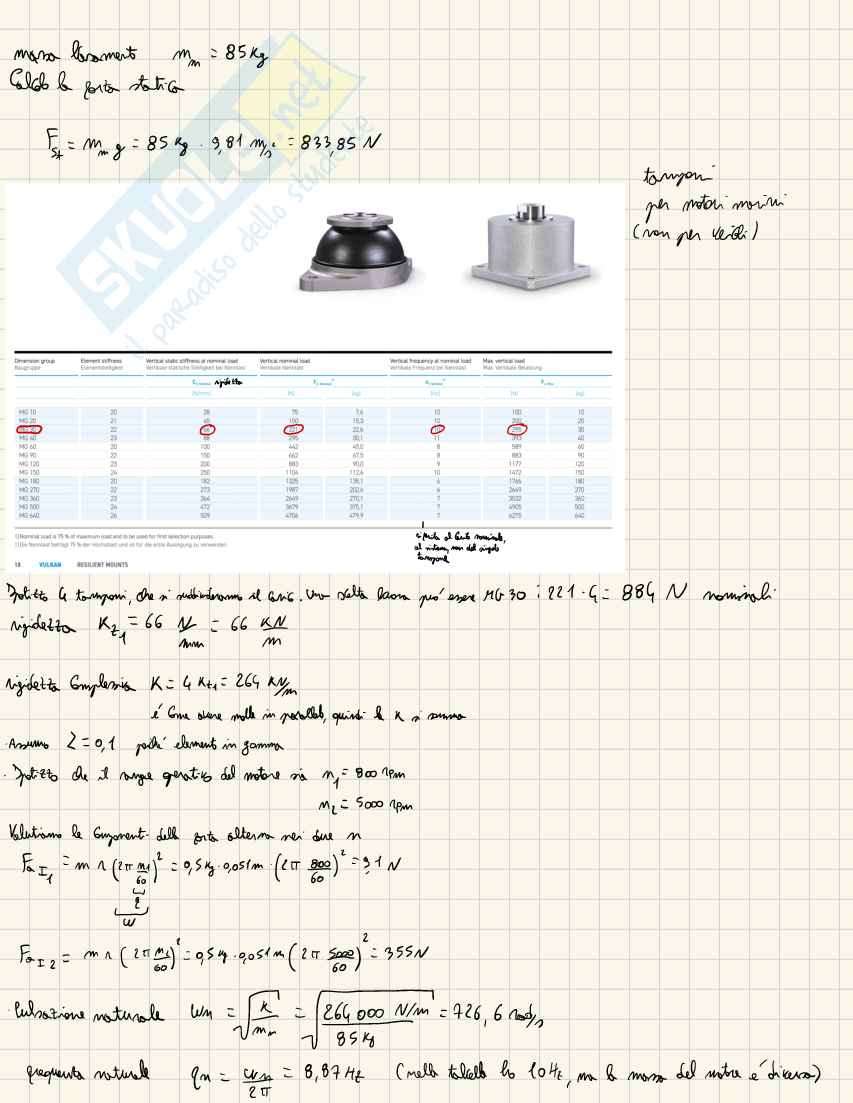 massa basamento m_m = 85 Kg
Calcolo la forza statica
F_st = m_m g = 85 Kg · 9,81 m/s² = 833,85 N
SKUOLA.net
il paradiso dello studente
tamponi
per motori marini
(non per veicoli)
Dimension group Element stiffness Vertical static stiffness at nominal load Vertical nominal load Vertical frequency at nominal load Max. vertical load
Baugruppe Elementsteifigkeit Vertikale statische Steifigkeit bei Nennlast Vertikale Nennlast Vertikale Frequenz bei Nennlast Max. Vertikale Belastung
rigidezza
[N/mm] [N] [kg] [Hz] [N] [kg]
MG 10 20 28 75 7,6 10 100 10
MG 20 21 45 150 15,3 10 200 20
MG 30 22 66 221 22,6 10 295 30
MG 40 23 88 295 30,1 11 393 40
MG 60 20 100 442 45,0 8 589 60
MG 90 22 150 662 67,5 8 883 90
MG 120 23 200 883 90,0 9 1177 120
MG 150 24 250 1104 112,6 10 1472 150
MG 180 20 182 1325 135,1 6 1766 180
MG 270 22 273 1987 202,6 6 2649 270
MG 360 23 364 2649 270,1 7 3532 360
MG 500 24 472 3679 375,1 7 4905 500
MG 640 26 529 4706 479,9 7 6275 640
riferita al carico nominale,
al sistema, non del singolo
tampone
1) Nominal load is 75 % of maximum load and to be used for first selection purposes.
1) Die Nennlast beträgt 75 % der Höchstlast und ist für die erste Auslegung zu verwenden.
18 VULKAN RESILIENT MOUNTS
Ipotizzo 4 tamponi, che si suddivideranno il carico. Una scelta buona può essere MG 30 : 221 · 4 = 884 N nominali
rigidezza K_z1 = 66 N/mm = 66 KN/m
rigidezza complessiva K = 4 K_z1 = 264 KN/m
è come avere molle in parallelo, quindi le K si somma
· Assumo ζ = 0,1 poiché elementi in gomma
· Ipotizzo che il range operativo del motore sia n_1 = 800 rpm
n_2 = 5000 rpm
Valutiamo le componenti della forza alterna nei due n
F_aI1 = m r (2π n_1/60)² = 0,5 Kg · 0,051 m · (2π 800/60)² = 9,1 N
ω
F_aI2 = m r (2π n_2/60)² = 0,5 Kg · 0,051 m (2π 5000/60)² = 355 N
· Pulsazione naturale ω_n = √(K/m_m) = √(264 000 N/m / 85 Kg) = 726,6 rad/s
frequenza naturale q_n = ω_n/2π = 8,87 Hz (nella tabella ho 10 Hz, ma la massa del motore è diversa)